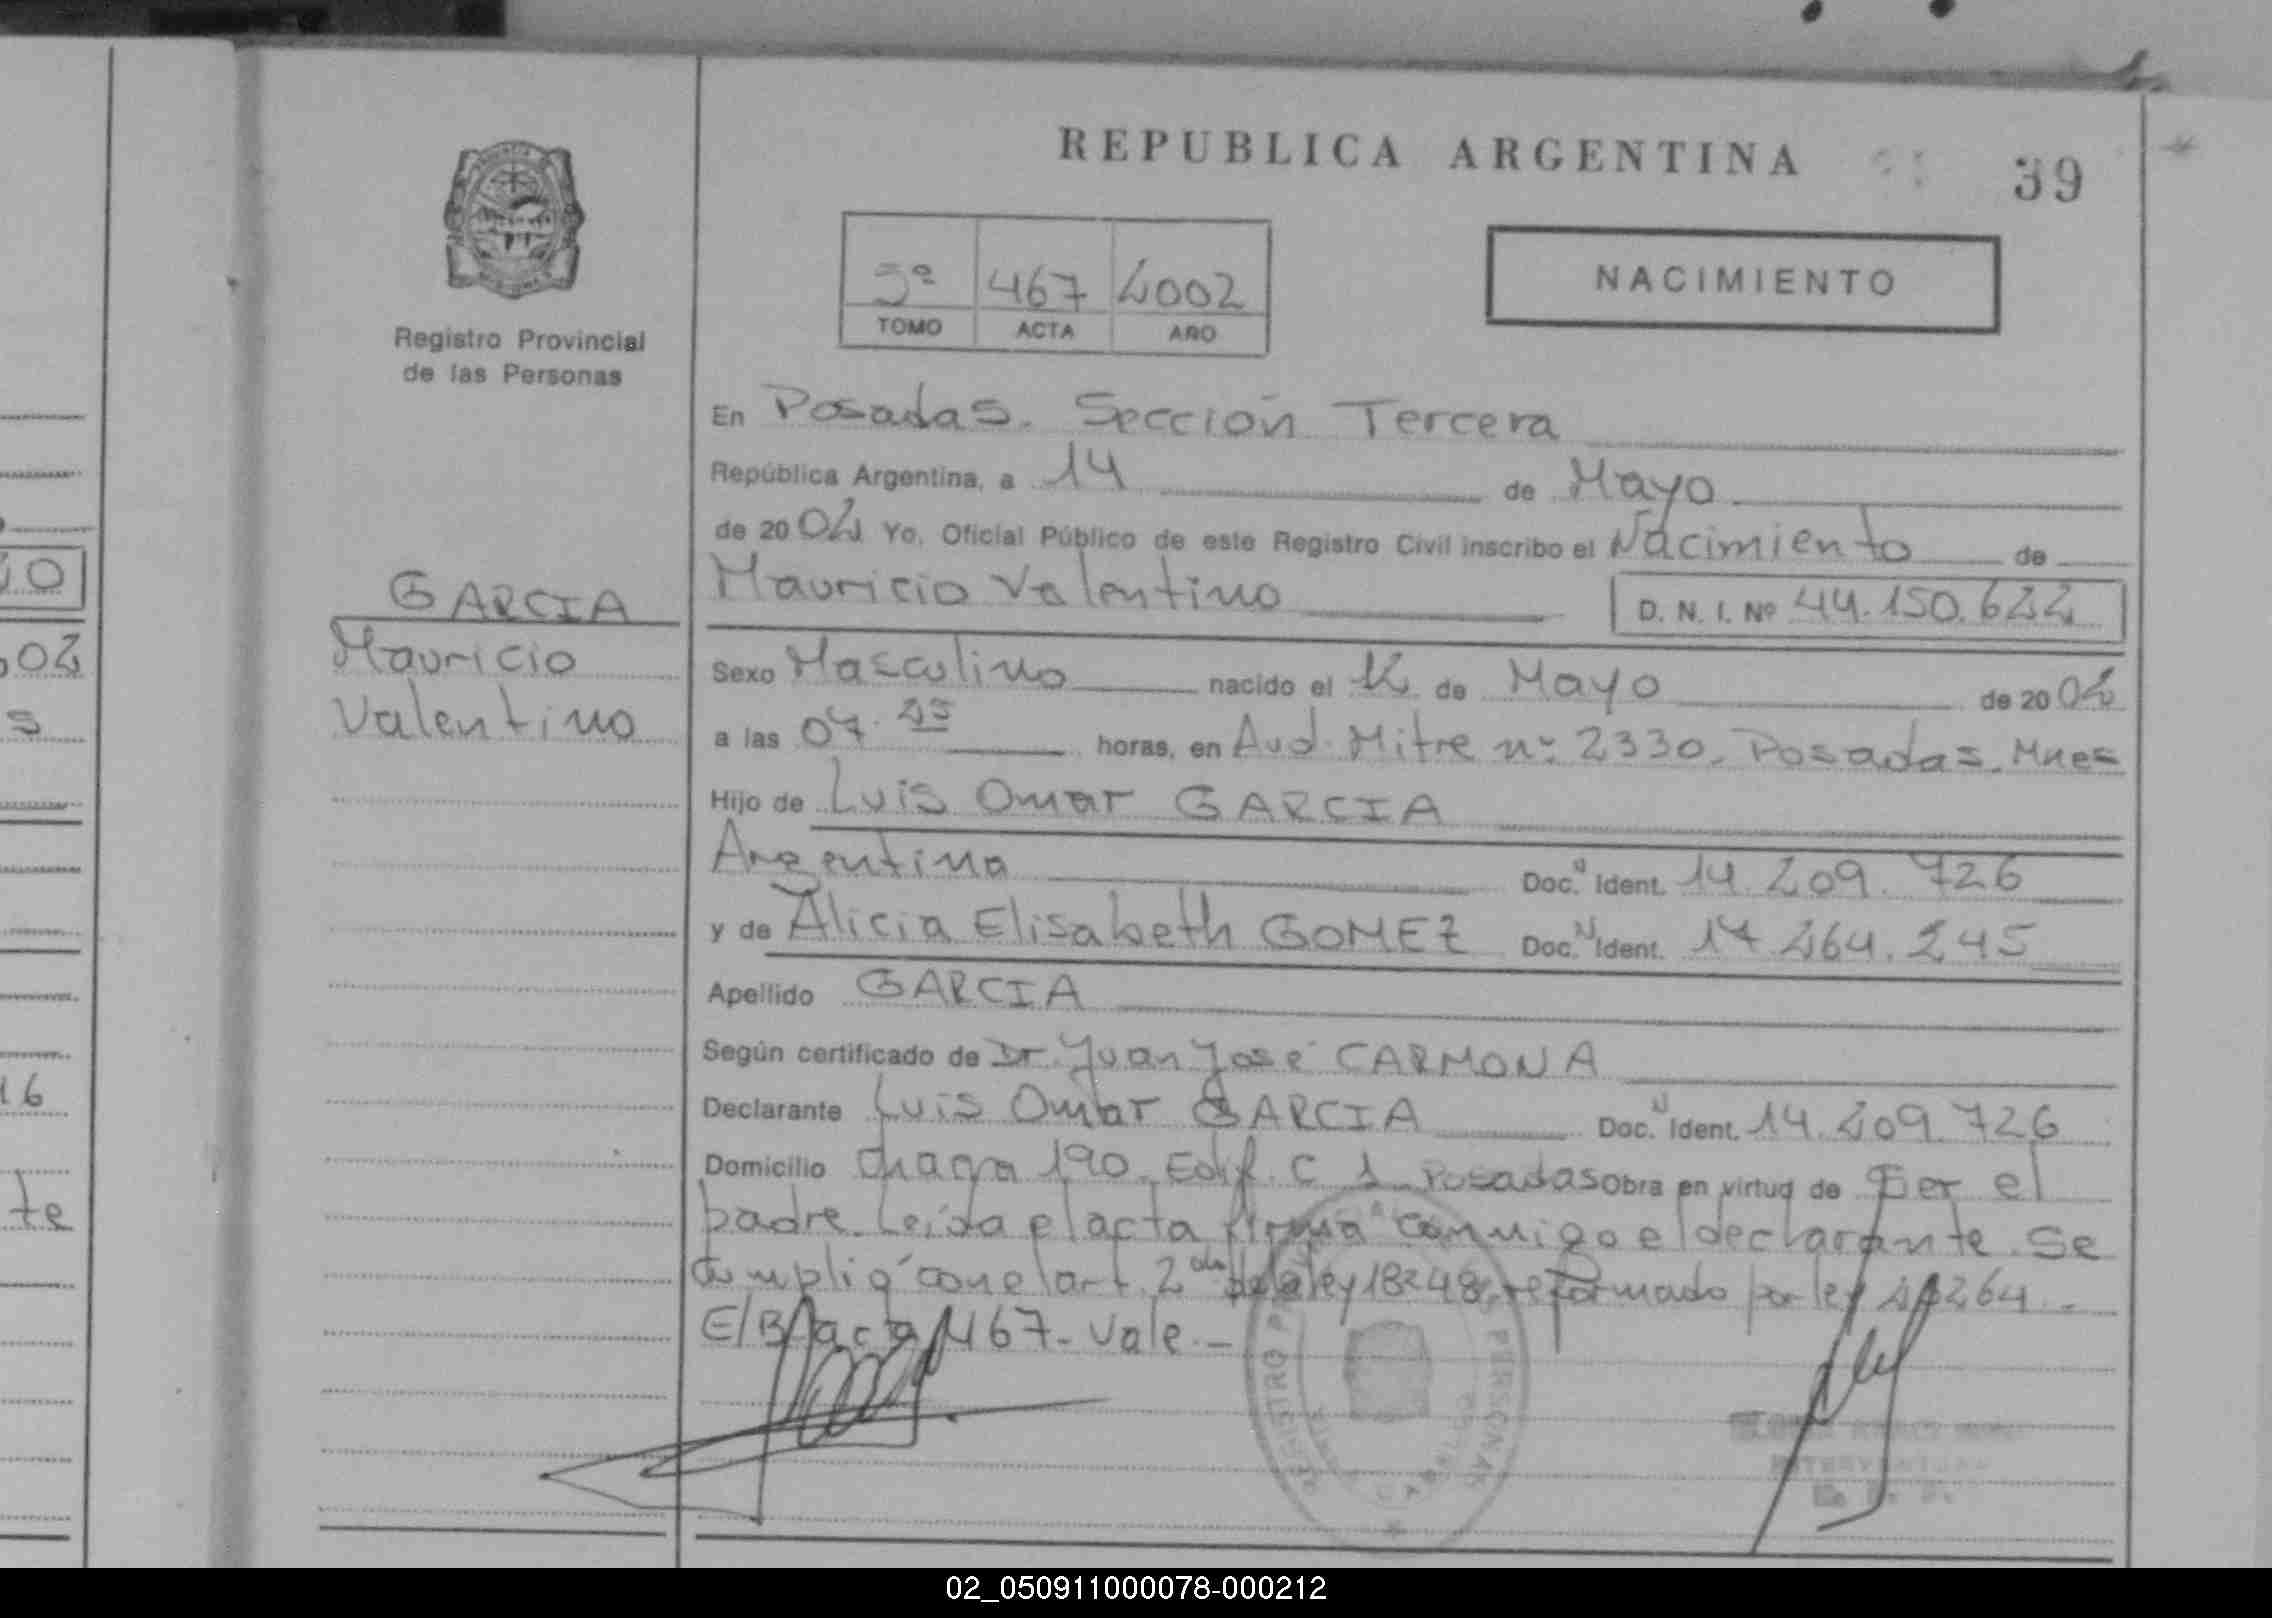 REPUBLICA ARGENTINA
39
NACIMIENTO
467 2002
TOMO ACTA AÑO
Registro Provincial
de las Personas
En Posadas. Sección Tercera
República Argentina, a 14 de Mayo
de 2002 Yo, Oficial Público de este Registro Civil inscribo el Nacimiento de
GARCIA
Mauricio
Valentino
Mauricio Valentino
D. N. I. Nº 44.150.622
Sexo Masculino nacido el 12 de Mayo de 2002
a las 07.25 horas, en Avd. Mitre nº 2330. Posadas. Mnes
Hijo de Luis Omar GARCIA
Argentina Doc. Ident. 14.209.726
y de Alicia Elisabeth GOMEZ Doc. Ident. 17.264.245
Apellido GARCIA
Según certificado de Dr. Juan José CARMONA
Declarante Luis Omar GARCIA Doc. Ident. 14.209.726
Domicilio Chacra 190. Edif. C 1 Posadas Obra en virtud de Ser el
padre. Leida el acta firma conmigo el declarante. Se
cumplió con el art. 2 de la ley 18248 reformado por ley 264.-
E/B/acta 467- Vale.-
02_050911000078-000212